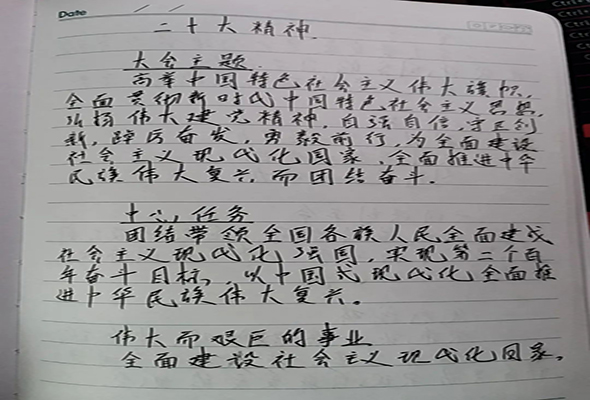 Date / /
二十大精神.
大会主题
高举中国特色社会主义伟大旗帜,
全面贯彻新时代中国特色社会主义思想,
弘扬伟大建党精神,自信自强,守正创
新,踔厉奋发,勇毅前行,为全面建设
社会主义现代化国家,全面推进中华
民族伟大复兴而团结奋斗.
中心任务
团结带领全国各族人民全面建成
社会主义现代化强国,实现第二个百
年奋斗目标,以中国式现代化全面推
进中华民族伟大复兴.
伟大而艰巨的事业
全面建设社会主义现代化国家.
Ctrl
Ctrl